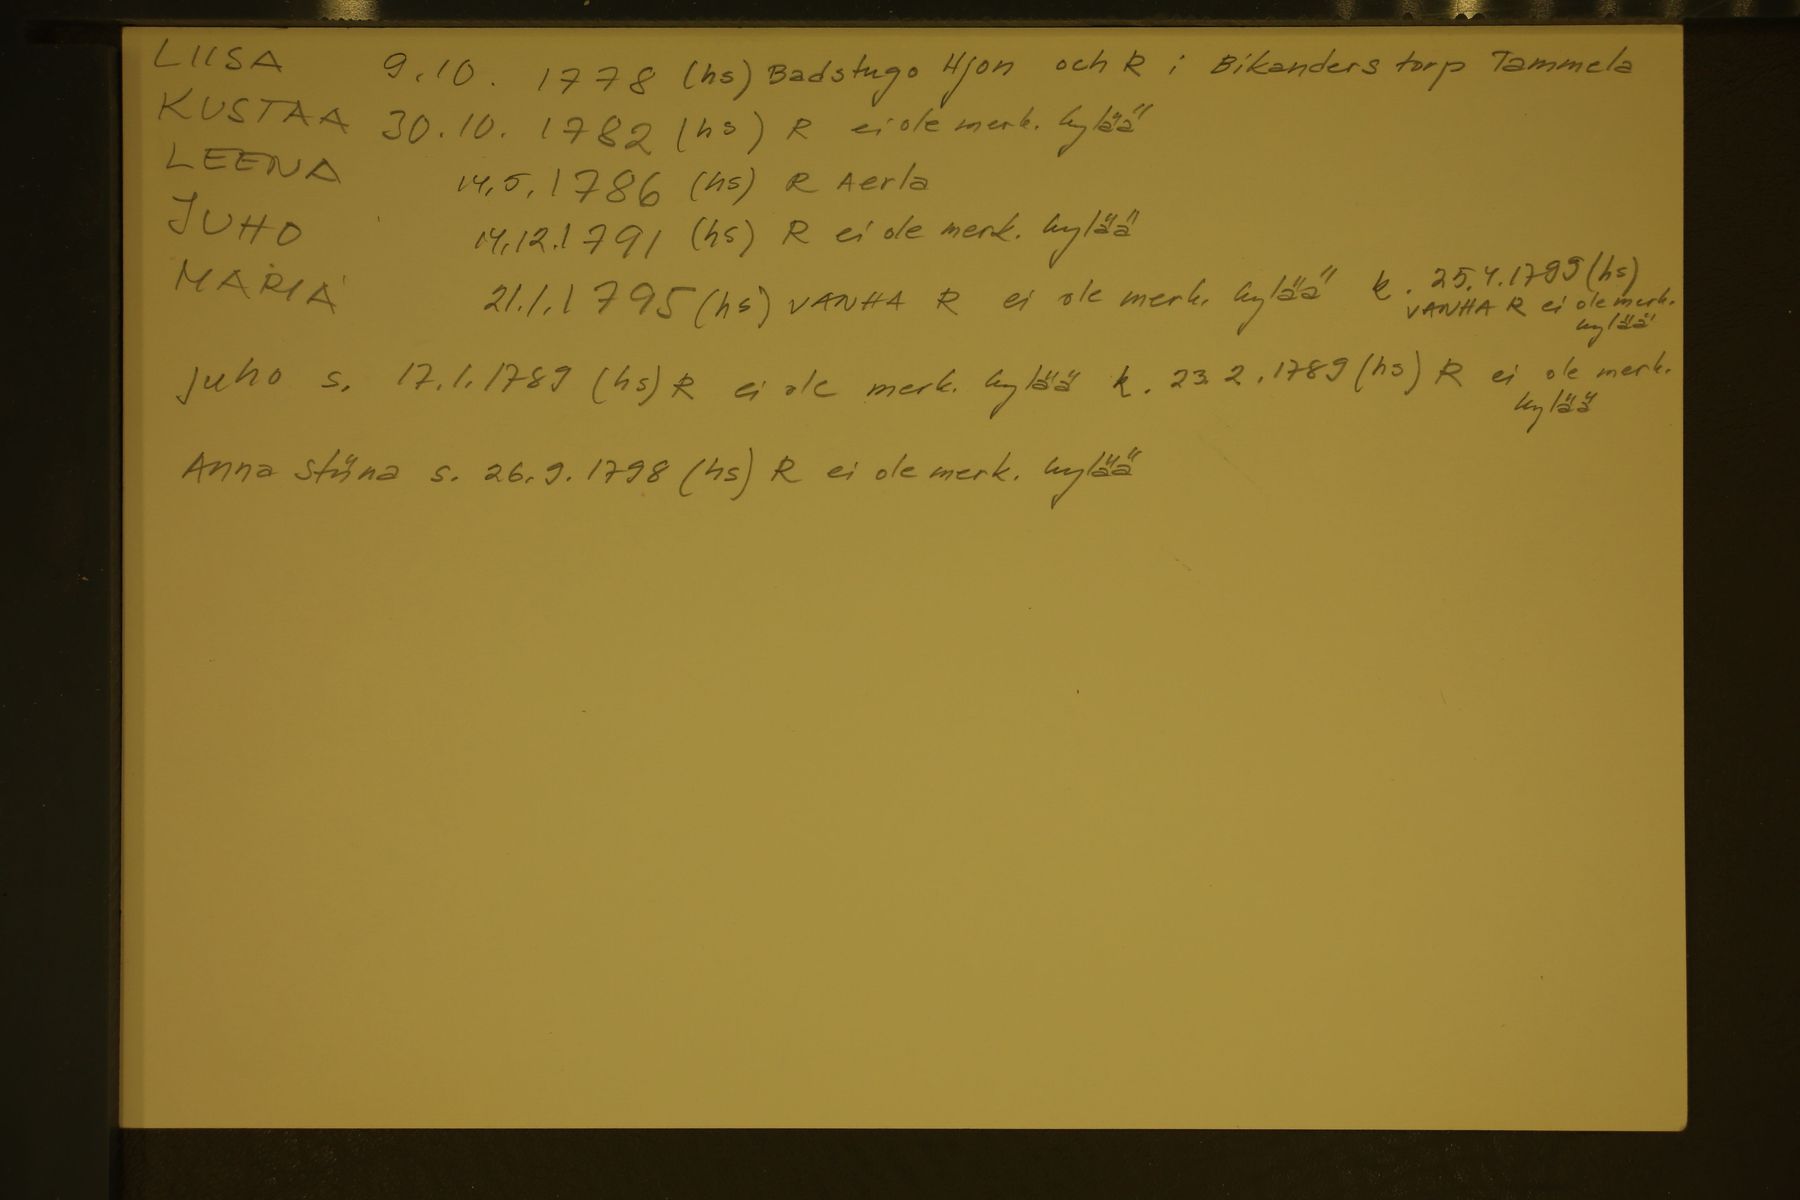 LIISA 9.10. 1778 (hs) Badstugo Hjon och R i Bikanders torp Tammela
KUSTAA 30.10. 1782 (hs) R ei ole merk. kylää
LEENA 14.5.1786 (hs) R Aerla
JUHO 14.12.1791 (hs) R ei ole merk. kylää
MARIA 21.1.1795 (hs) VANHA R ei ole merk. kylää k. 25.4.1799 (hs)
VANHA R ei ole merk.
kylää
Juho s. 17.1.1789 (hs) R ei ole merk. kylää k. 23.2.1789 (hs) R ei ole merk.
kylää
Anna Stiina s. 26.9.1798 (hs) R ei ole merk. kylää